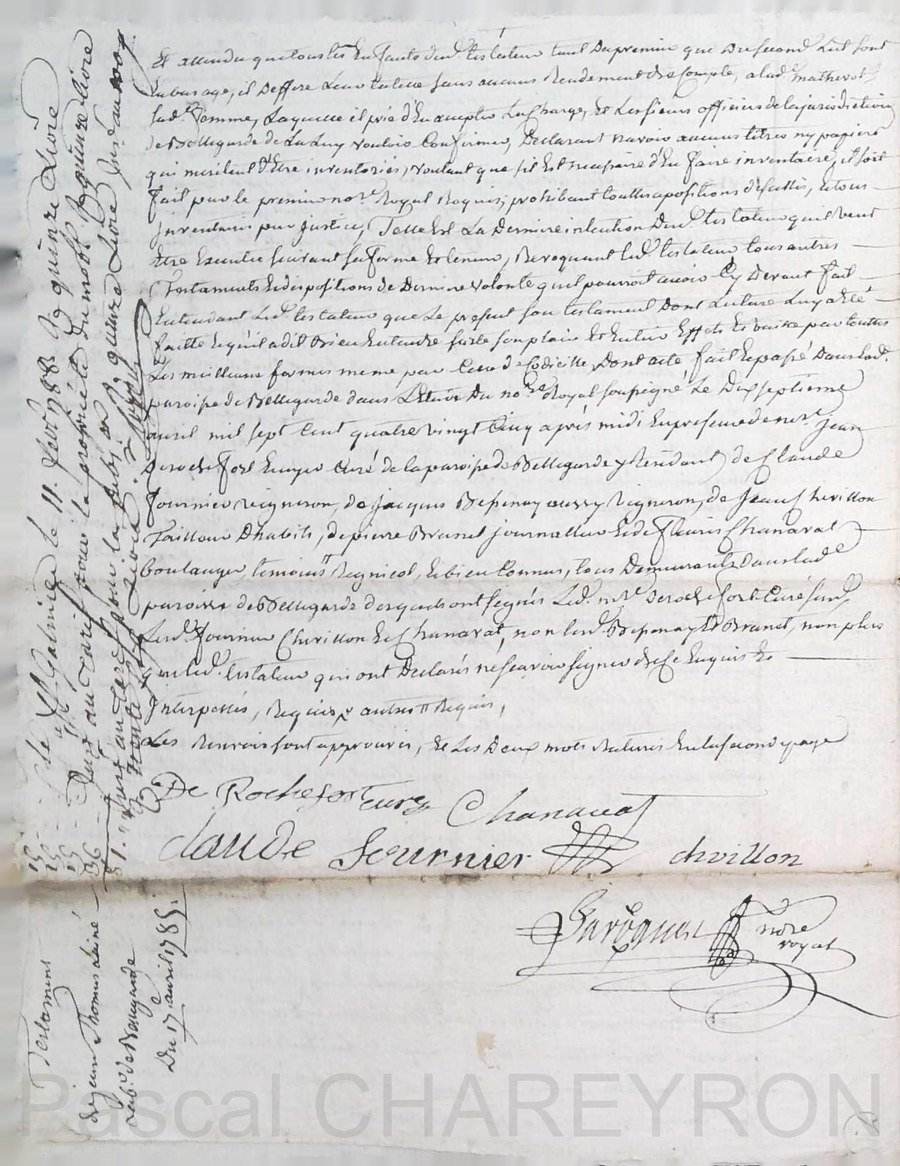 Et attendu que tous les Enfants dud. testateur tant Du premier que Du second Lit sont
En bas age, il Deffere Leur tutelle sans aucuns Rendement De Compte, a lad. mathevot
sad. femme, Laquelle il prie d'En accepter La Charge, Et Les sieurs officiers de la jurisdiction
de Bellegarde de La Luy vouloir Confirmer, Declarant n'avoir aucuns titres ny papiers
qui meritent d'Etre inventoriés, voulant que s'il Est necessaire d'En faire inventaire, il soit
fait par le premier nore. Royal Requis; prohibant touttes apositions de scellés, et tous
inventaires par justice, Telle Est La Derniere intention Dud. testateur qu'il veut
Etre Executée suivant sa forme Et teneur, Revoquant led. testateur tous autres
Testaments et dispositions de Derniere volonté qu'il pourroit avoir Cy Devant fait
Entendant Led. testateur que Le present son testament Dont Lecture Luy a Eté
faitte et qu'il a dit Bien Entendre sorte son plain Et Entier Effets Et vaille par touttes
Les meilleures formes meme par Celle de Codicille, Dont acte fait et passé Dans lad.
paroisse de Bellegarde dans L'Etude Du nore. Royal soussigné Le Dix septieme
avril mil sept Cent quatre vingt Cinq après midi En presence de mre. Jean
Derochefort Ecuyer Curé de la paroisse de Bellegarde y Residant, de Claude
fournier vigneron, de Jacques Bessenay aussy vigneron, de Jean Chevillon
Tailleur D'habits, de pierre Brunel journallier et de fleuris Chanavat
boulanger, temoins Regnicol, et bien Connus, tous Demeurants Dans lade
paroisse de Bellegarde desquels ont signés Led. mre. Derochefort Curé
Led. fournier Chevillon et Chanavat, non lesd. Bessenay Et Brunel, non plus
que led. testateur qui ont Declarés ne scavoir signer de ce Enquis Et
Interpellés, Requis
Les Renvois sont approuvés, Et Les Deux mots Raturés En la seconde page
De Rochefort curé Chanavat
Claude fournier chvillon
nore
royal
à St Galmier le 11. fevr 1788 Rg quinze Livre
pour la proprieté du
Testament
de jean Thomas Lainé
de Bellegarde
Du 17 avril 1785.
Pascal CHAREYRON